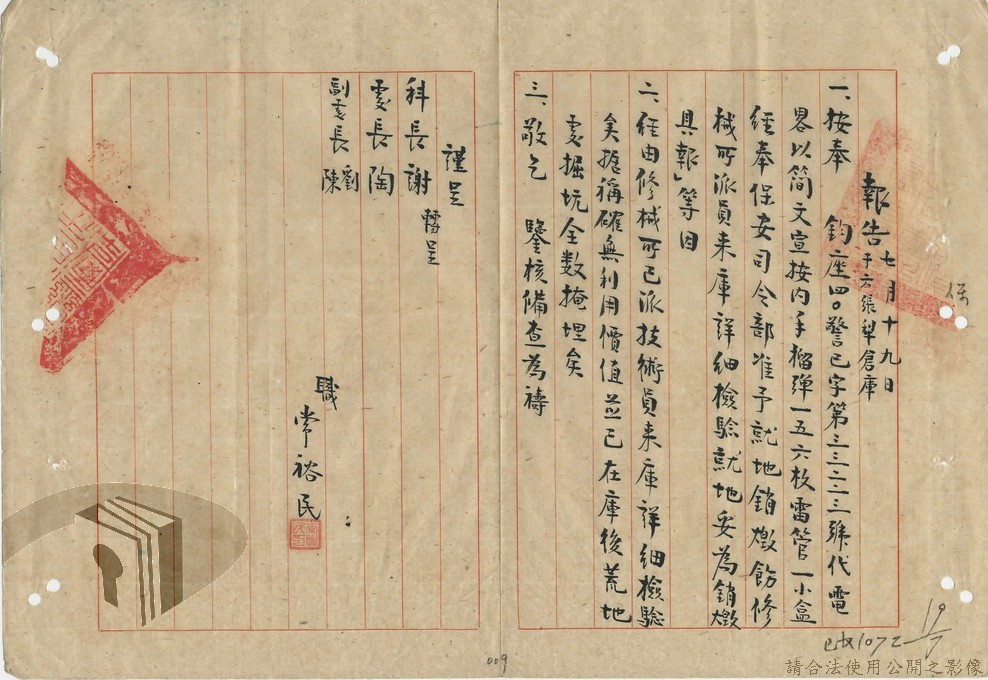 報告 七月十九日
于六張犁倉庫
一、按奉　鈞座四○警已字第三三二二三號代電
畧以简文宣按內手榴弹一五六枚雷管一小盒
經奉保安司令部准予就地銷燬飭修
械所派員来庫詳细檢驗就地妥為銷燬
具報」等因
二、經由修械所已派技術員来庫詳细檢驗
矣据稱確無利用價值並已在庫後荒地
處掘坑全数掩埋矣
三、敬乞　鑒核備查為禱
謹呈
科長謝　轉呈
處長陶
副處長劉
陳
職
常裕民
19/7
1072
009
請合法使用公開之影像